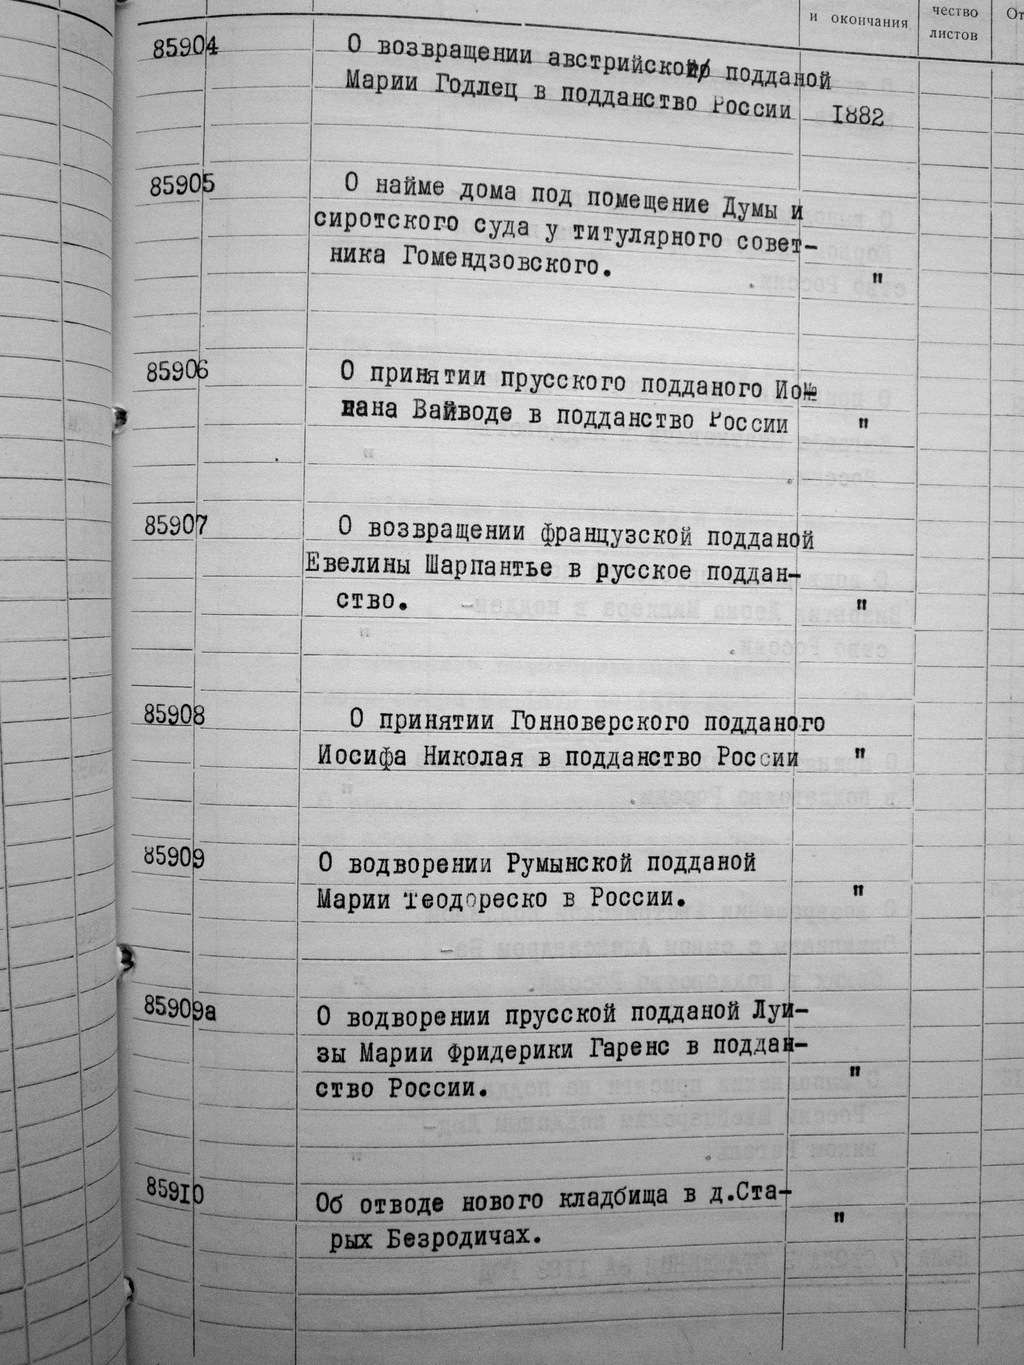 и окончания
чество
листов
От
85904
О возвращении австрийской подданой
Марии Годлец в подданство России 1882
85905
О найме дома под помещение Думы и
сиротского суда у титулярного совет-
ника Гомендзовского. "
85906
О принятии прусского подданого Ио
яана Вайводе в подданство России "
85907
О возвращении французской подданой
Евелины Шарпантье в русское поддан-
ство. "
85908
О принятии Гонноверского подданого
Иосифа Николая в подданство России "
85909
О водворении Румынской подданой
Марии Теодореско в России. "
85909а
О водворении прусской подданой Луи-
зы Марии Фридерики Гаренс в поддан-
ство России. "
85910
Об отводе нового кладбища в д.Ста-
рых Безродичах. "